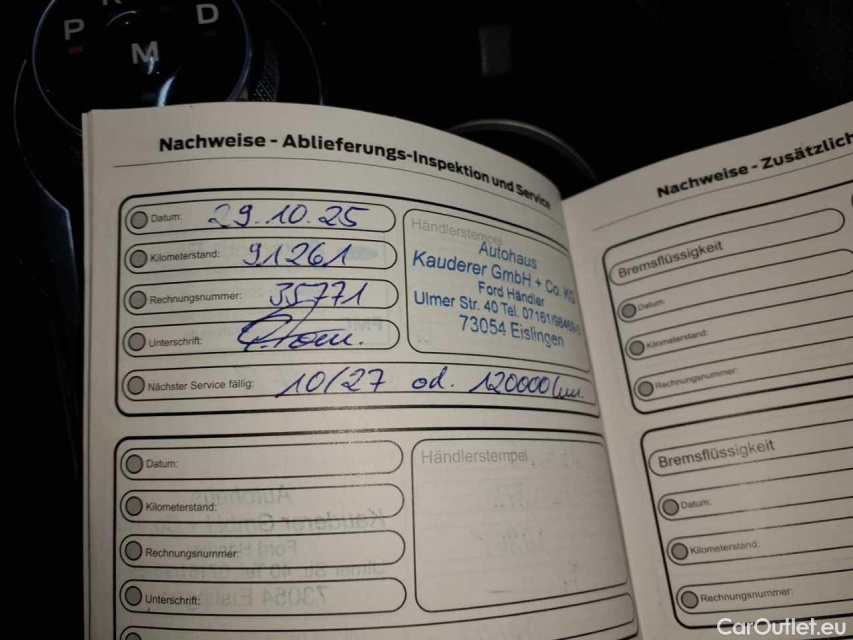 P R D
M
Nachweise - Ablieferungs-Inspektion und Service
Datum: 29.10.25
Kilometerstand: 91261
Rechnungsnummer: 35771
Unterschrift:
Nächster Service fällig: 10/27 od. 120000 km.
Händlerstempel
Autohaus
Kauderer GmbH + Co. KG
Ford Händler
Ulmer Str. 40 Tel. 07161/98460-0
73054 Eislingen
Datum:
Kilometerstand:
Rechnungsnummer:
Unterschrift:
Händlerstempel
Nachweise - Zusätzlich
Bremsflüssigkeit
Datum:
Kilometerstand:
Rechnungsnummer:
Bremsflüssigkeit
Datum:
Kilometerstand:
Rechnungsnummer:
CarOutlet.eu